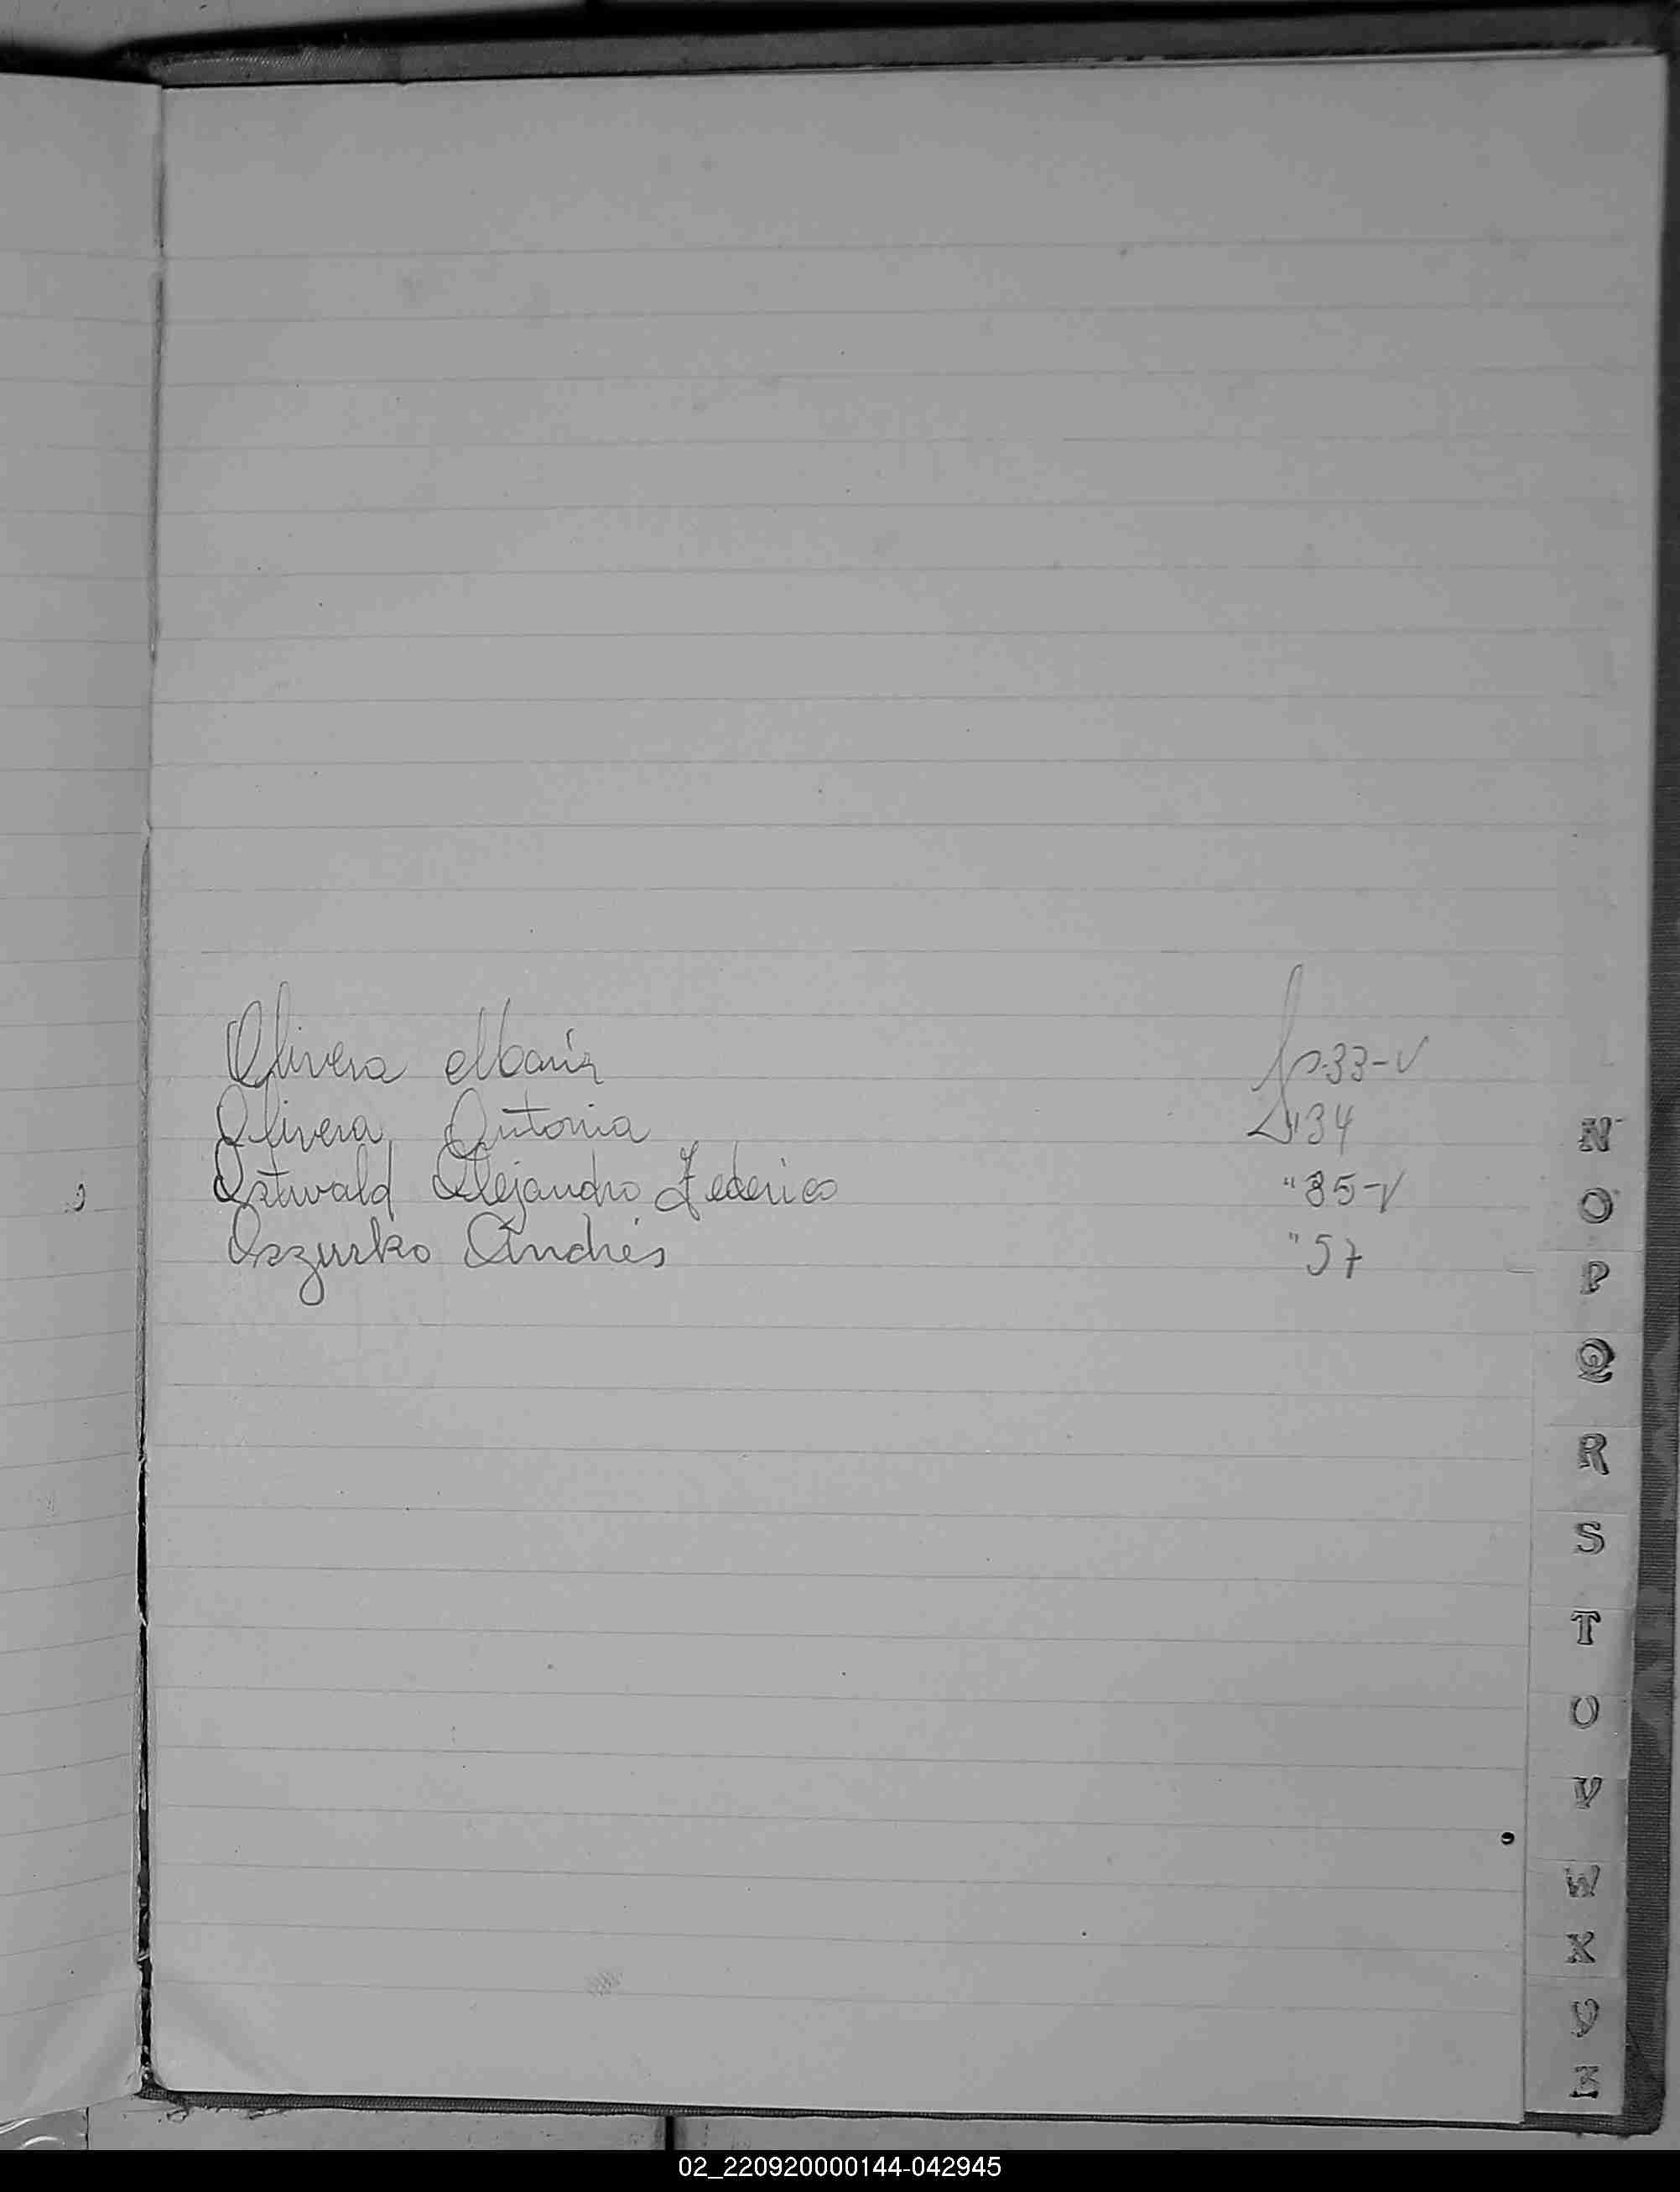 Olivera María fs. 33-v
Olivera Antonia " 34
Ostwald Alejandro Federico " 35-v
Oszurko Andrés " 57
N
O
P
Q
R
S
T
U
V
W
X
Y
Z
02_220920000144-042945